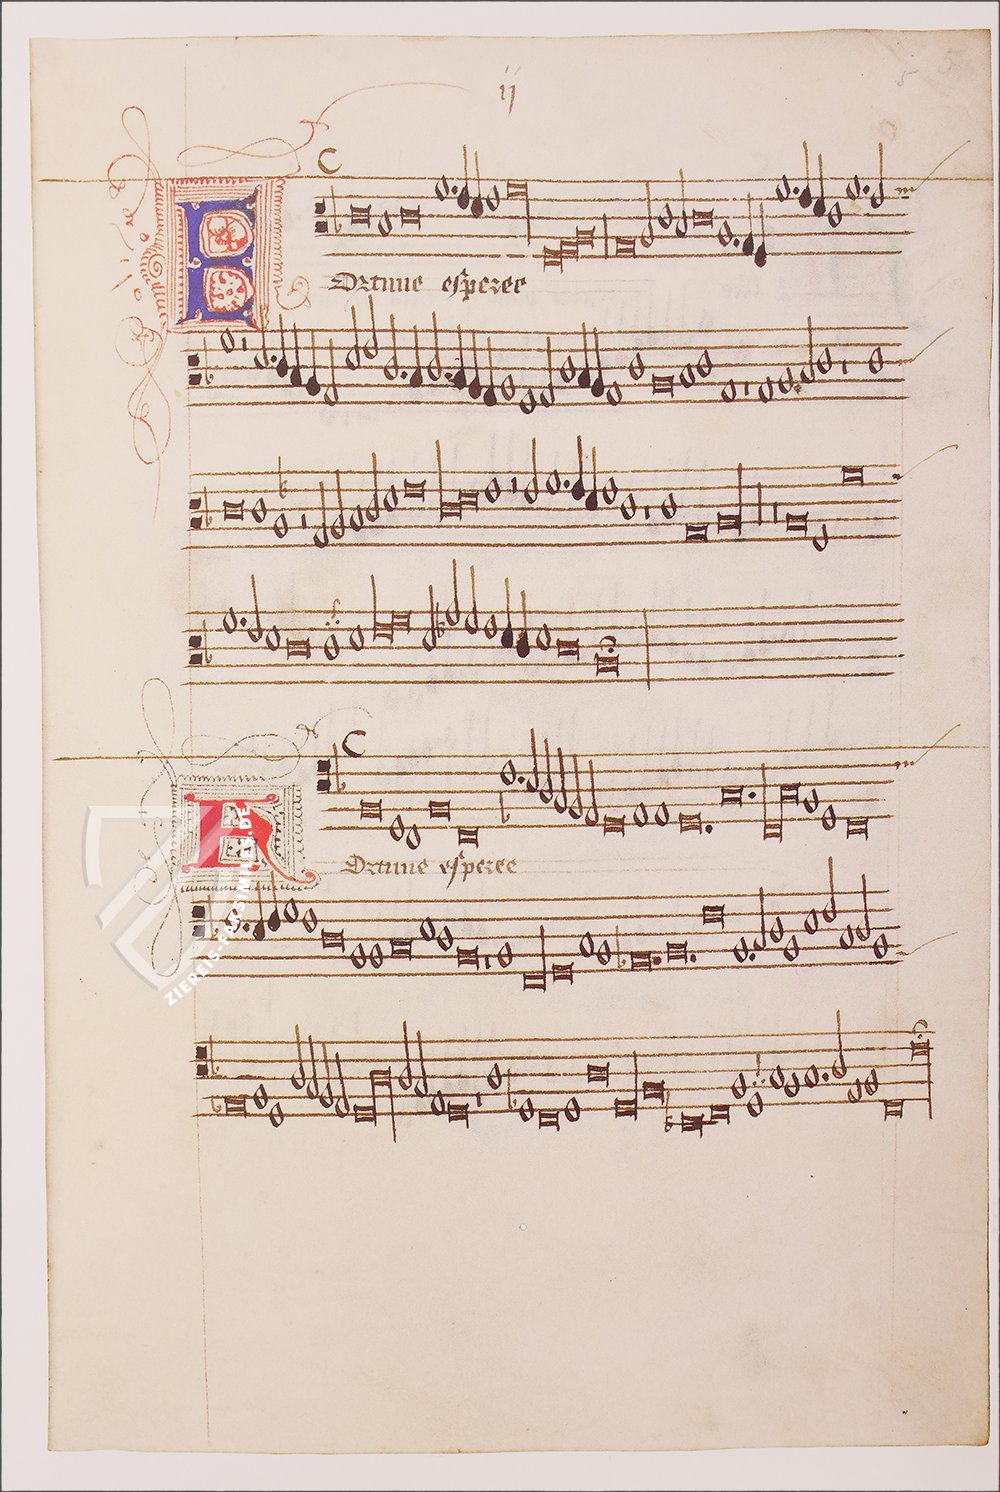 ij
5
Ortune esperee
Ortune esperee
ZIEREIS-FAKSIMILES.DE